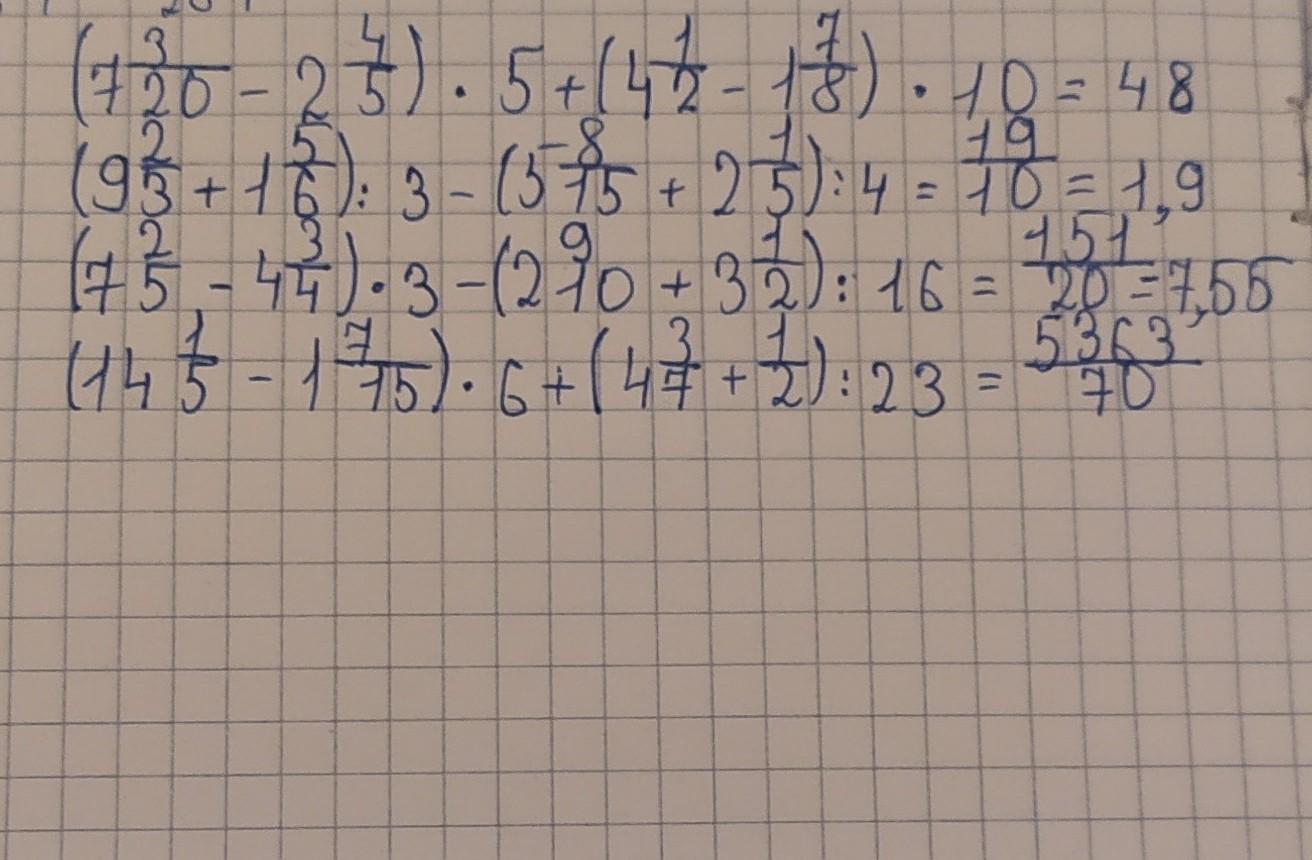 (7 3/20 - 2 4/5) · 5 + (4 1/2 - 1 7/8) · 10 = 48
(9 2/3 + 1 5/6) : 3 - (5 8/15 + 2 1/5) : 4 = 19/10 = 1,9
(7 2/5 - 4 3/4) · 3 - (2 9/10 + 3 1/2) : 16 = 151/20 = 7,55
(14 1/5 - 1 7/15) · 6 + (4 3/7 + 1/2) : 23 = 5363/70